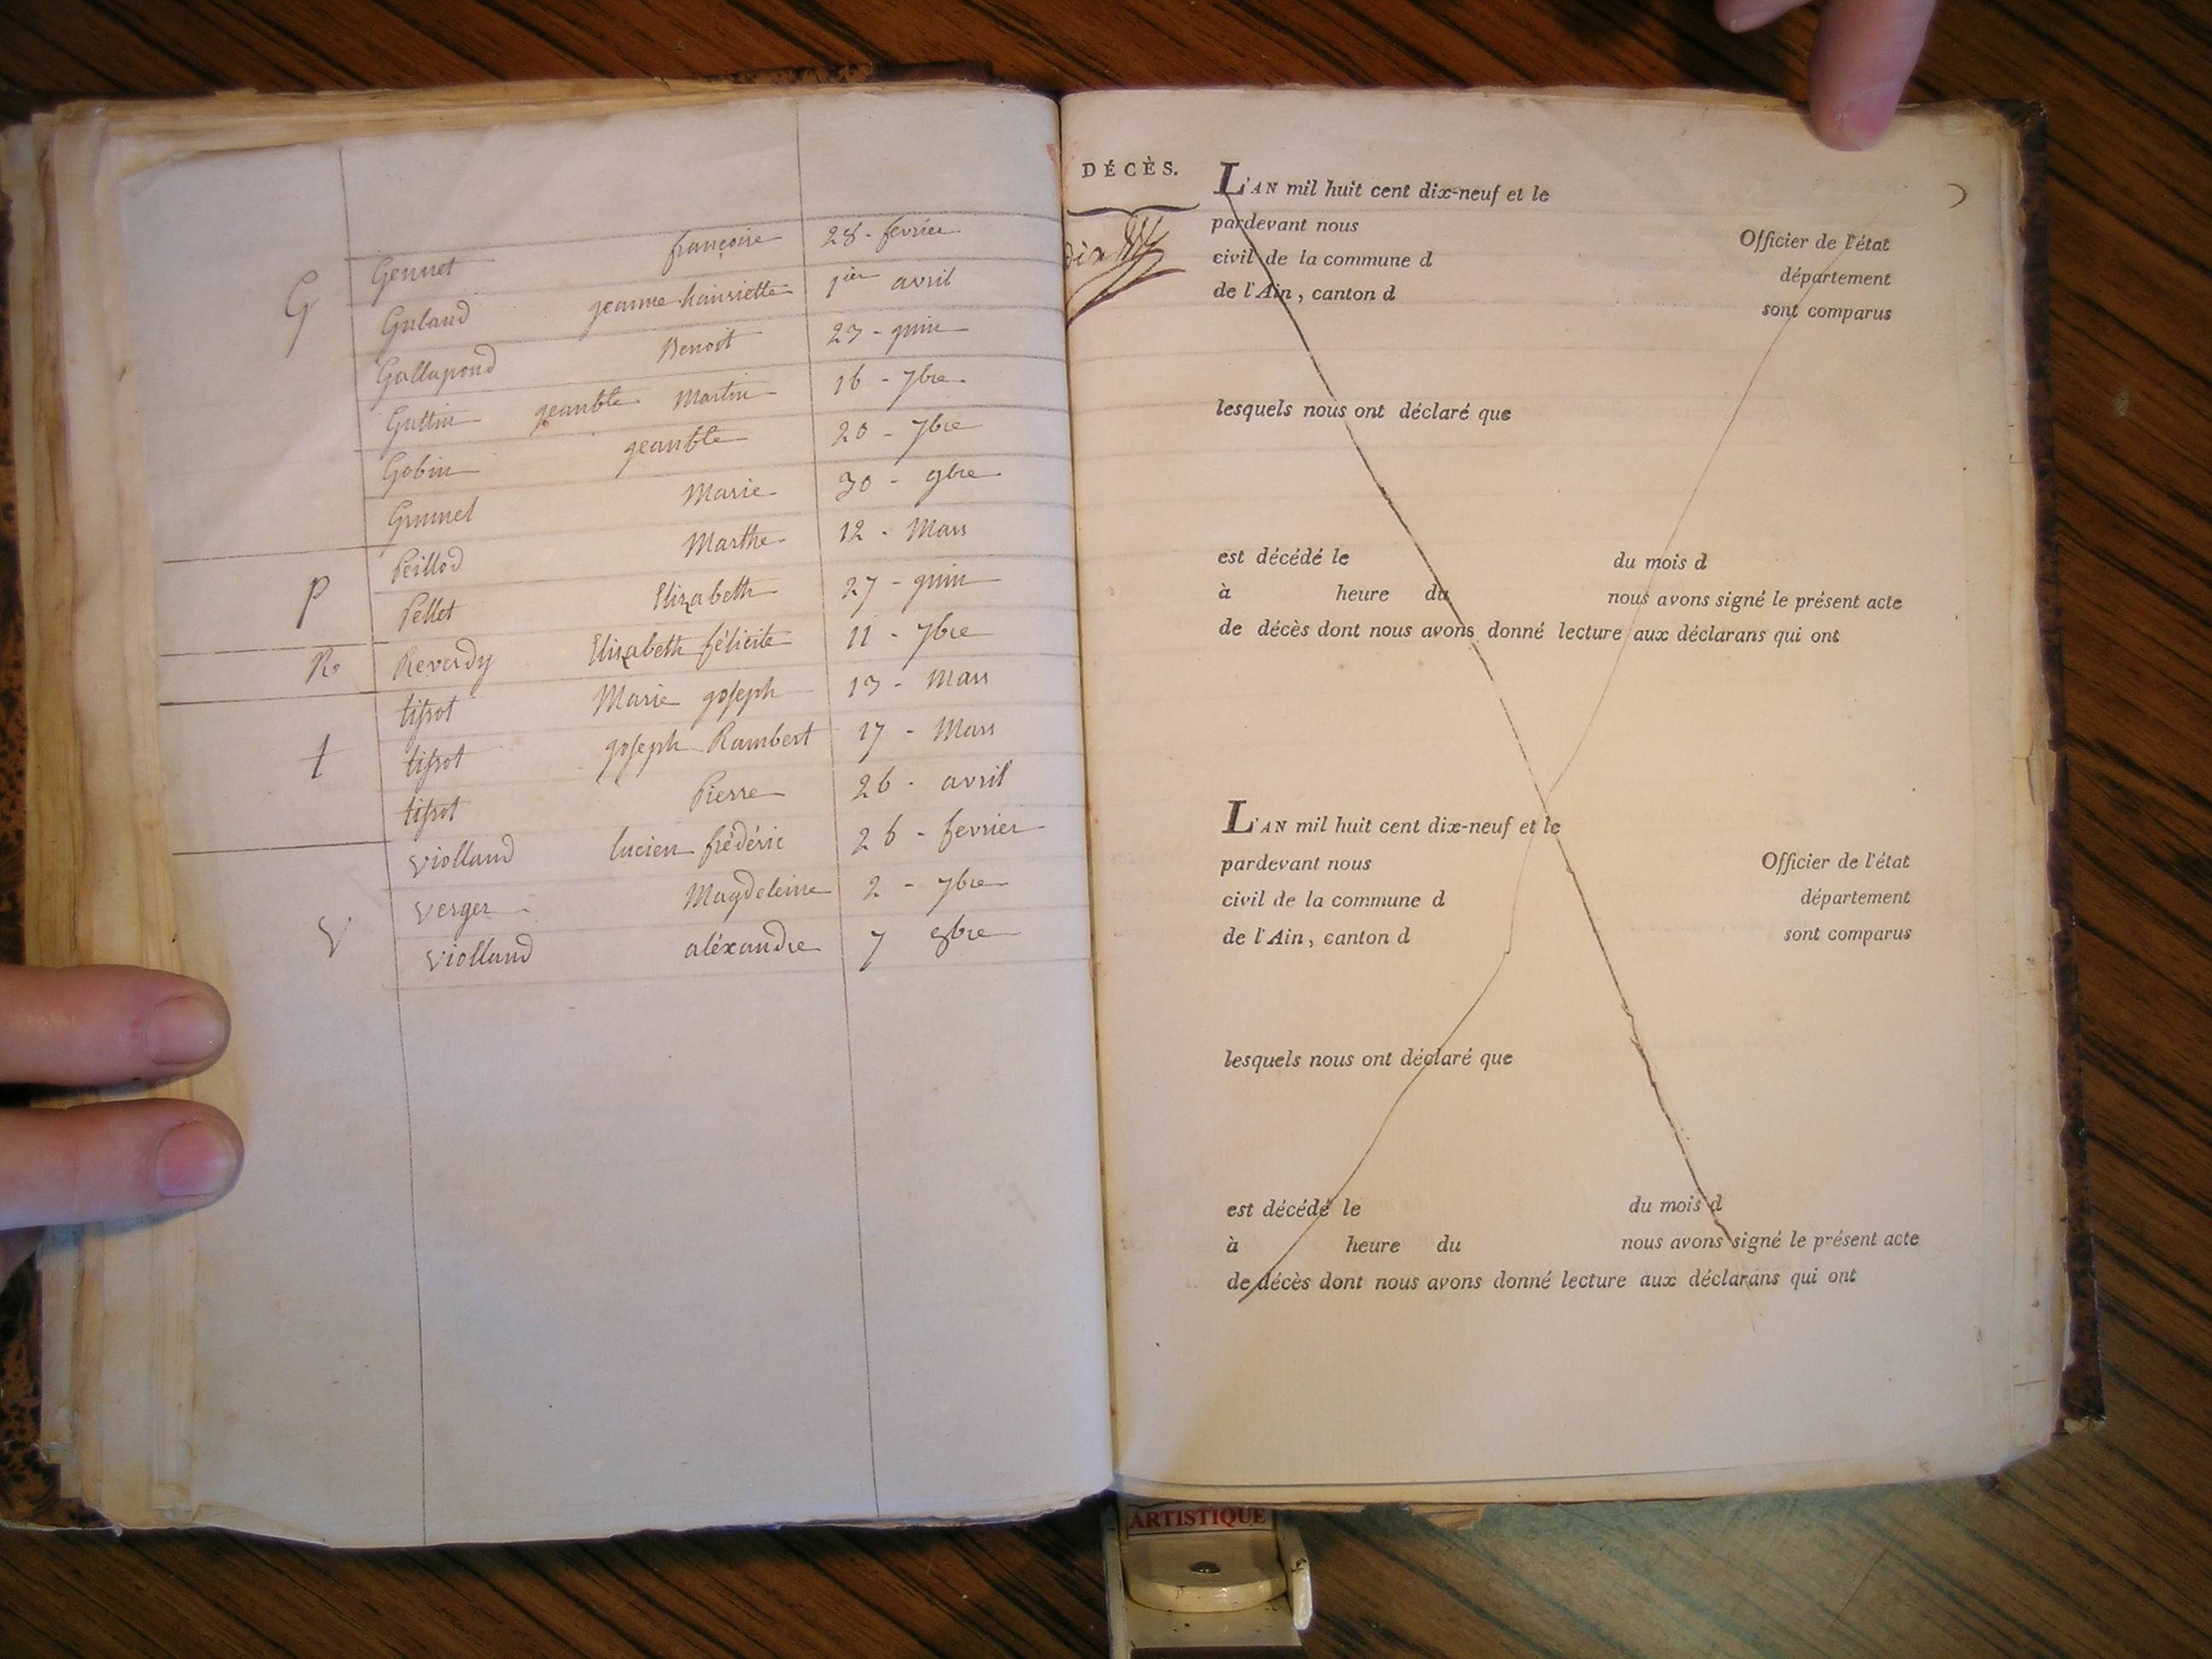 G
Gennet françoise 28 - fevrier
Gubaud jeanne hanriette 1ier avril
Gallapond Benoit 23 - juin
Guttin jeanbte Martin 16 - 7bre
Gobin jeanbte 20 - 7bre
Grumel Marie 30 - 9bre
P
Peillod Marthe 12 - Mars
Pellet Elizabeth 27 - juin
R Reverdy Elizabeth félicite 11 - 7bre
t
tissot Marie joseph 13 - Mars
tissot joseph Rambert 17 - Mars
tissot Pierre 26 - avril
V
violland lucien frédéric 26 - fevrier
verger Magdeleine 2 - 7bre
violland aléxandre 7 8bre
DÉCÈS.
dix
L'AN mil huit cent dix-neuf et le
pardevant nous Officier de l'état
civil de la commune d département
de l'Ain, canton d sont comparus
lesquels nous ont déclaré que
est décédé le du mois d
à heure du nous avons signé le présent acte
de décès dont nous avons donné lecture aux déclarans qui ont
L'AN mil huit cent dix-neuf et le
pardevant nous Officier de l'état
civil de la commune d département
de l'Ain, canton d sont comparus
lesquels nous ont déclaré que
est décédé le du mois d
à heure du nous avons signé le présent acte
de décès dont nous avons donné lecture aux déclarans qui ont
ARTISTIQUE